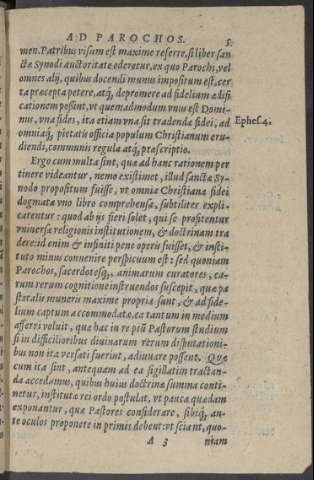 AD PAROCHOS. 5.
men. Patribus visum est maxime referre, si liber san
ctæ Synodi auctoritate ederetur, ex quo Parochi, vel
omnes alij, quibus docendi munus impositum est, cer
ta precepta petere, atq́, depromere ad fidelium ædifi
cationem possent, vt quemadmodum vnus est Domi-
nus, vna fides, ita etiam vna sit tradendæ fidei, ad
Ephes.4.
omniaq́, pietatis officia populum Christianum eru-
diendi, communis regula atq́, præscriptio.
Ergo cum multa sint, quæ ad hanc rationem per
tinere videantur, nemo existimet, illud sanctæ Sy-
nodo propositum fuisse, vt omnia Christianæ fidei
dogmata vno libro comprehensa, subtiliter expli-
carentur: quod ab ijs fieri solet, qui se profitentur
vniuersæ religionis institutionem, & doctrinam tra
dere: id enim & infiniti pene operis fuisset, & insti-
tuto minus conuenire perspicuum est: sed quoniam
Parochos, sacerdotesq́,, animarum curatores, ea-
rum rerum cognitione instruendos suscepit, quæ pa
storalis muneris maxime propriæ sunt, & ad fide-
lium captum accommodatæ, ea tantum in medium
afferri voluit, quæ hac in re piũ Pastorum studium
si in difficilioribus diuinarum rerum disputationi-
bus non ita versati fuerint, adiuuare possent. Quæ
cum ita sint, antequam ad ea sigillatim tractan-
da accedamus, quibus huius doctrinæ summa conti-
netur, institutæ rei ordo postulat, vt pauca quædam
exponantur, quæ Pastores considerare, sibiq́, an-
te oculos proponere in primis debent: vt sciant, quo-
A 3 niam